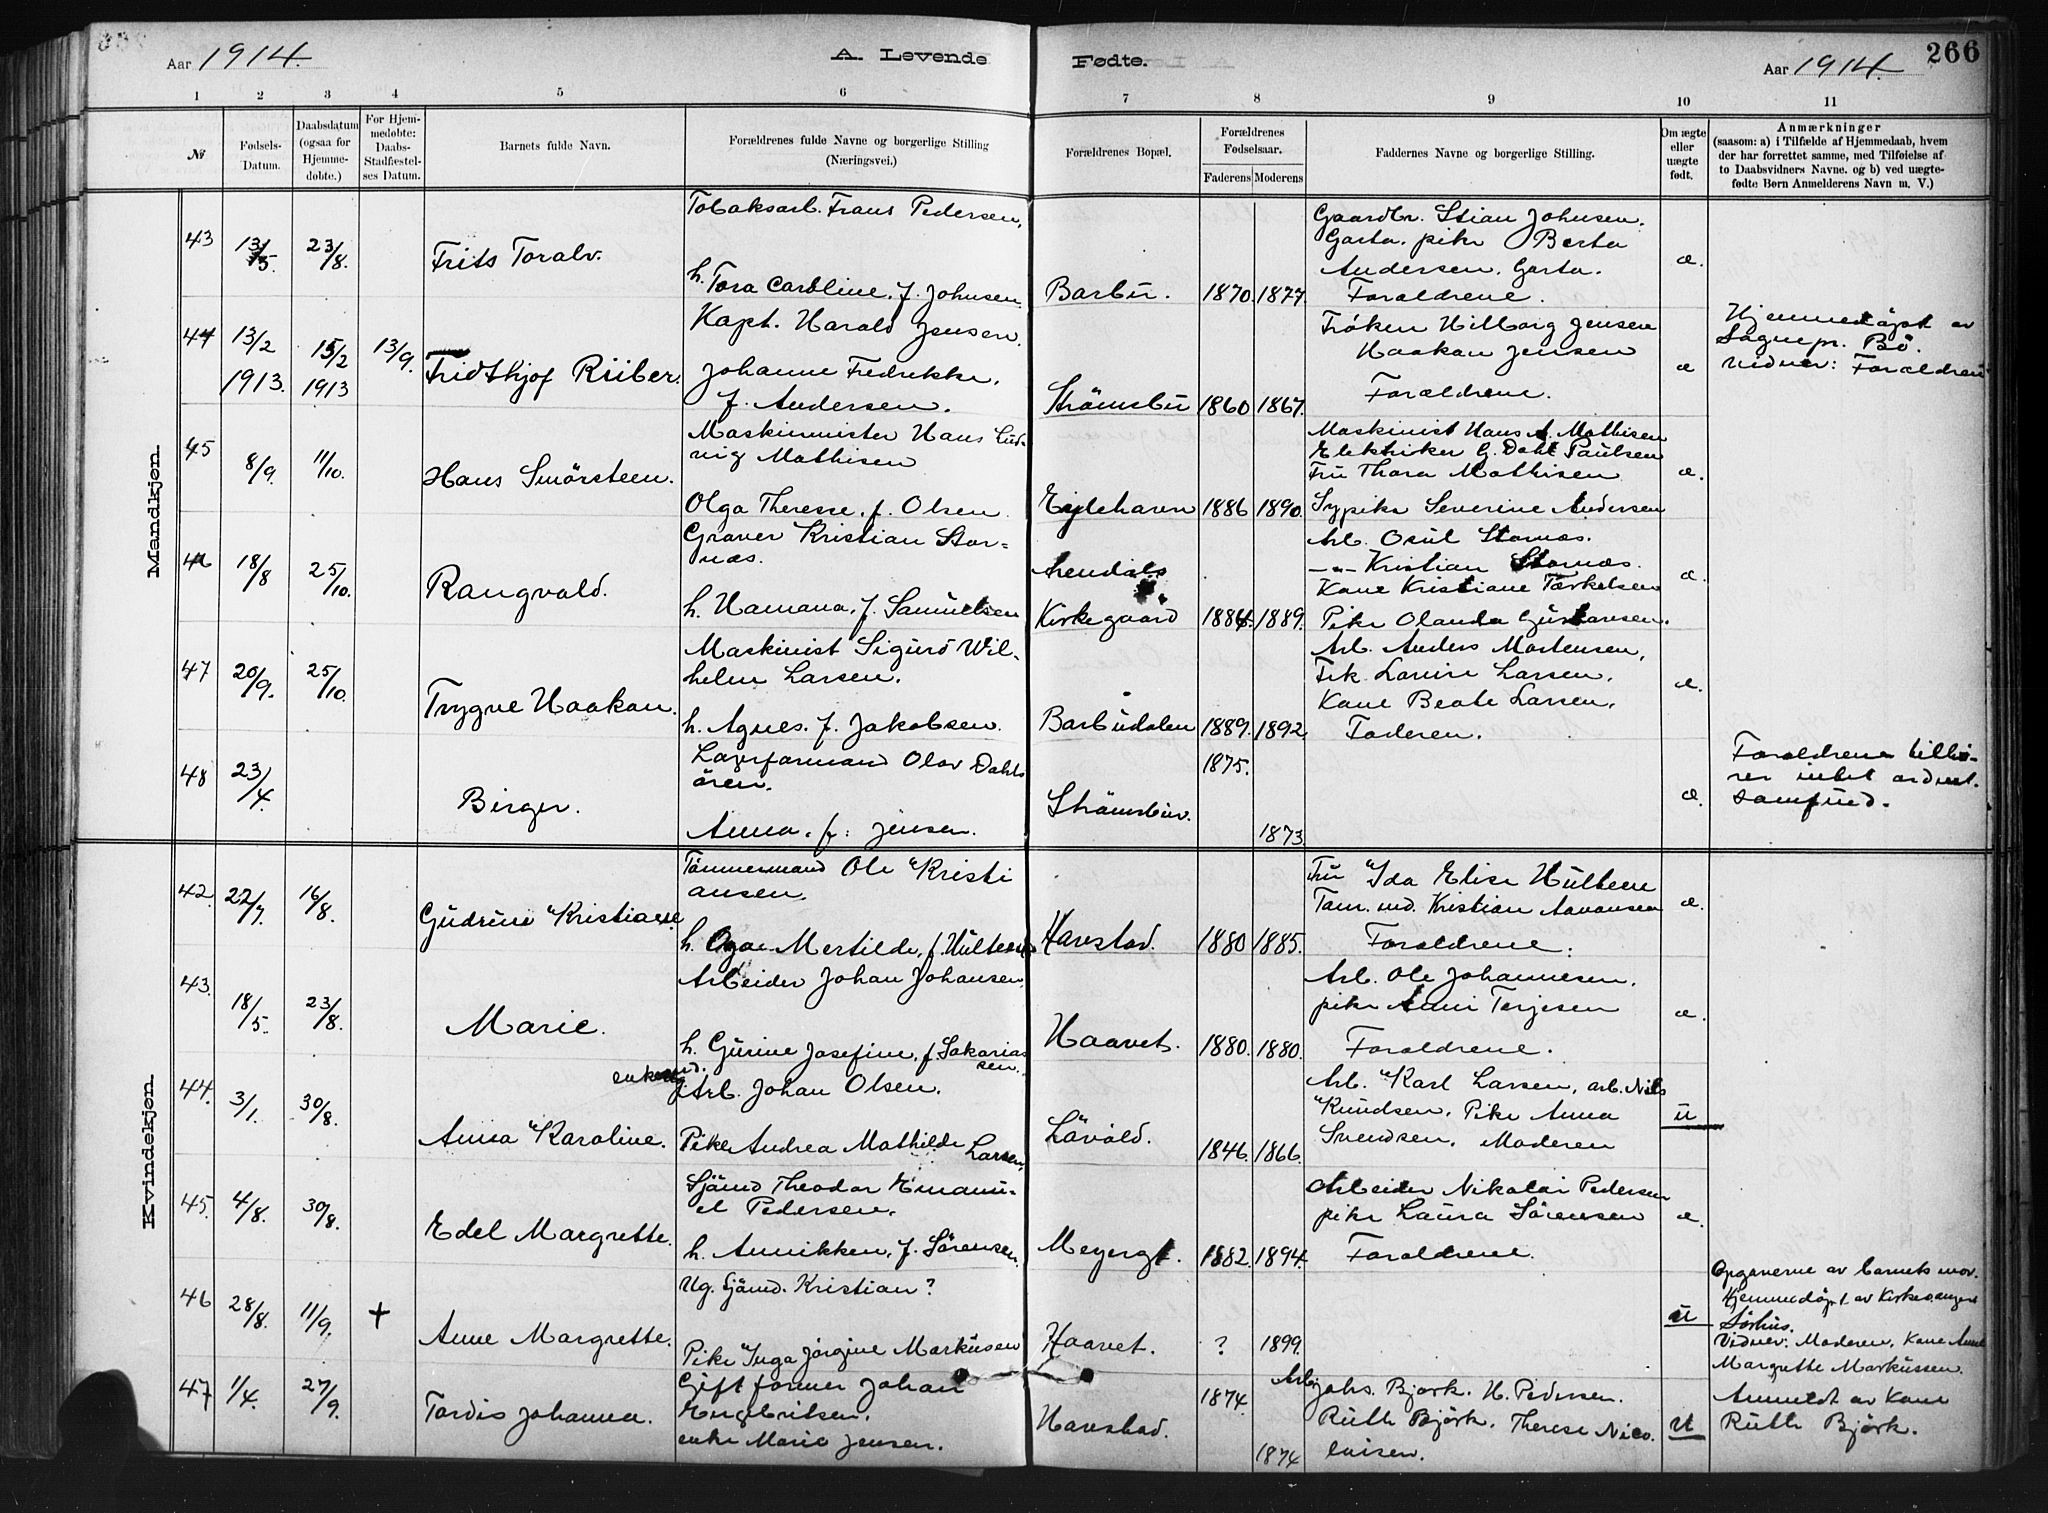 Aar 1914.
A. Levende Fødte.
Aar 1914.
266
1 2 3 4 5 6 7 8 9 10 11
No
Fødsels-
Datum.
Daabsdatum
(ogsaa for
Hjemme-
døbte.)
For Hjem-
medøbte:
Daabs-
Stadfæstel-
ses Datum.
Barnets fulde Navn.
Forældrenes fulde Navne og borgerlige Stilling
(Næringsvei.)
Forældrenes Bopæl.
Forældrenes
Fødselsaar.
Faderens Moderens
Faddernes Navne og borgerlige Stilling.
Om ægte
eller
uægte
født.
Anmærkninger
(saasom: a) i Tilfælde af Hjemmedaab, hvem
der har forrettet samme, med Tilføielse af
to Daabsvidners Navne. og b) ved uægte-
fødte Børn Anmelderens Navn m. V.)
Mandkjøn.
43
13/5.
23/8.
Frits Toralv.
Tobaksarb. Frans Pedersen,
h. Tora Caroline, f. Johnsen
Barbu.
1870. 1877.
Gaardbr. Stian Johnsen.
Garta. pike Berta
Andersen. Garta.
Forældrene.
æ.
44
13/2
1913.
15/2
1913
13/9.
Fridtkjof Riiber.
Kapt. Harald Jensen.
Johanne Fredrikke.
f. Andersen.
Strömsbu
1860 1867.
Fröken Hilborg Jensen
Haakon Jensen
Forældrene.
æ
Hjemmedöpt av
Sognepr. Bö.
Vidner: Forældrene
45
8/9.
11/10.
Hans Smörsteen.
Maskinmister Hans Lud-
vig Mathisen
Olga Therese. f. Olsen
Eydehavn
1886 1890.
Maskinist Hans A. Mathisen
Elektriker G. Dahl Paulsen
Fru Thora Mathisen
Sypike Severine Andersen
æ.
46
18/8
25/10.
Rangvald.
Graver Kristian Stor=
næs.
h. Hamana, f. Samuelsen
Arendals
Kirkegaard
1884. 1889.
Arb. Osul Stornæs.
-"- Kristian Stornæs.
Kone Kristiane Terkelsen
Pike Olanda Gustavsen.
æ.
47
20/9.
25/10.
Trygve Haakon.
Maskinist Sigurd Wil-
helm Larsen.
h. Agnes. f. Jakobsen.
Barbudalen
1889. 1892.
Arb. Anders Mortensen,
Frk. Lovise Larsen.
Kone Beate Larsen.
Faderen.
æ.
48
23/4.
Birger.
Lagerformand Olav Dahls
ören.
Anna. f: Jensen.
Strömsbu.
1875.
1873
æ.
Forældrene tilhö-
rer intet ordnet.
samfund.
Kvindekjøn.
42.
22/7.
16/8.
Gudrun Kristiane.
Tömmermand Ole Kristi
ansen.
h. Mertilde, f. Hulteen
Harestad.
1880 1885.
Fru Ida Elise Hulteen
Töm. md. Kristian Aavansen
Forældrene.
æ.
43.
18/5.
23/8.
Marie.
Arbeider Johan Johansen
h. Gurine Josefine, f. Sakarias
sen.
Haavet.
1880. 1880.
Arb. Ole Johannesen.
pike Anni Terjesen
Forældrene.
æ.
44.
3/1.
30/8.
Anna Karoline.
enkemd.
Arb. Johan Olsen.
Pike Andrea Mathilde Larsen,
Lövold.
1846. 1866.
Arb. Karl Larsen, arb. Nils
Knudsen. Pike Anna
Svendsen. Moderen
u
45.
4/8.
30/8.
Edel Margrette.
Sjömd Theodor Emanu-
el Pedersen.
h. Annikken, f. Sörensen.
Meyergt.
1882. 1894.
Arbeider Nikolai Pedersen
pike Laura Sörensen
Forældrene.
æ.
46
28/8.
11/9.
+
Anne Margrette.
Ug. Sjömd. Kristian?
Pike Inga Jörgine Markussen
Haavet.
? 1899.
u
Opgaverne av barnets mor.
Hjemmedöpt av Kirkesanger
Sörhus.
Vidner: Moderen, Kone Anne
Margrethe Markussen.
47
1/4.
27/9.
Tordis Johanna.
Gift former Johan
Engebritsen.
enke Marie Jensen.
Harestad.
1874.
1874
Arb. Johs. Bjork. H. Pedersen.
Ruth Björk. Therese Nico.
laisen.
u
Anmeldt av Kone
Ruth Björk.